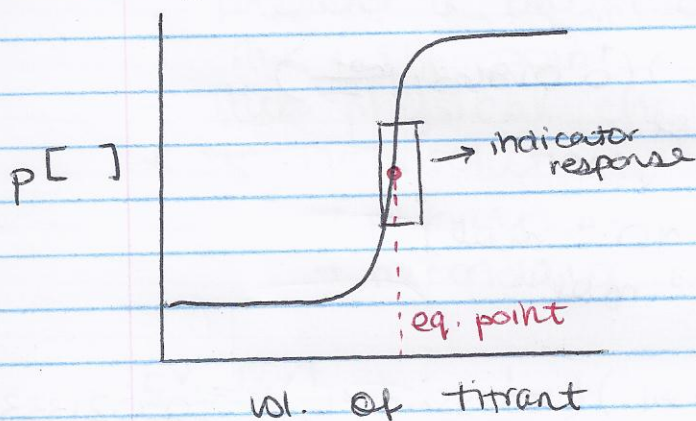 p[ ]
→ indicator
response
eq. point
vol. of titrant